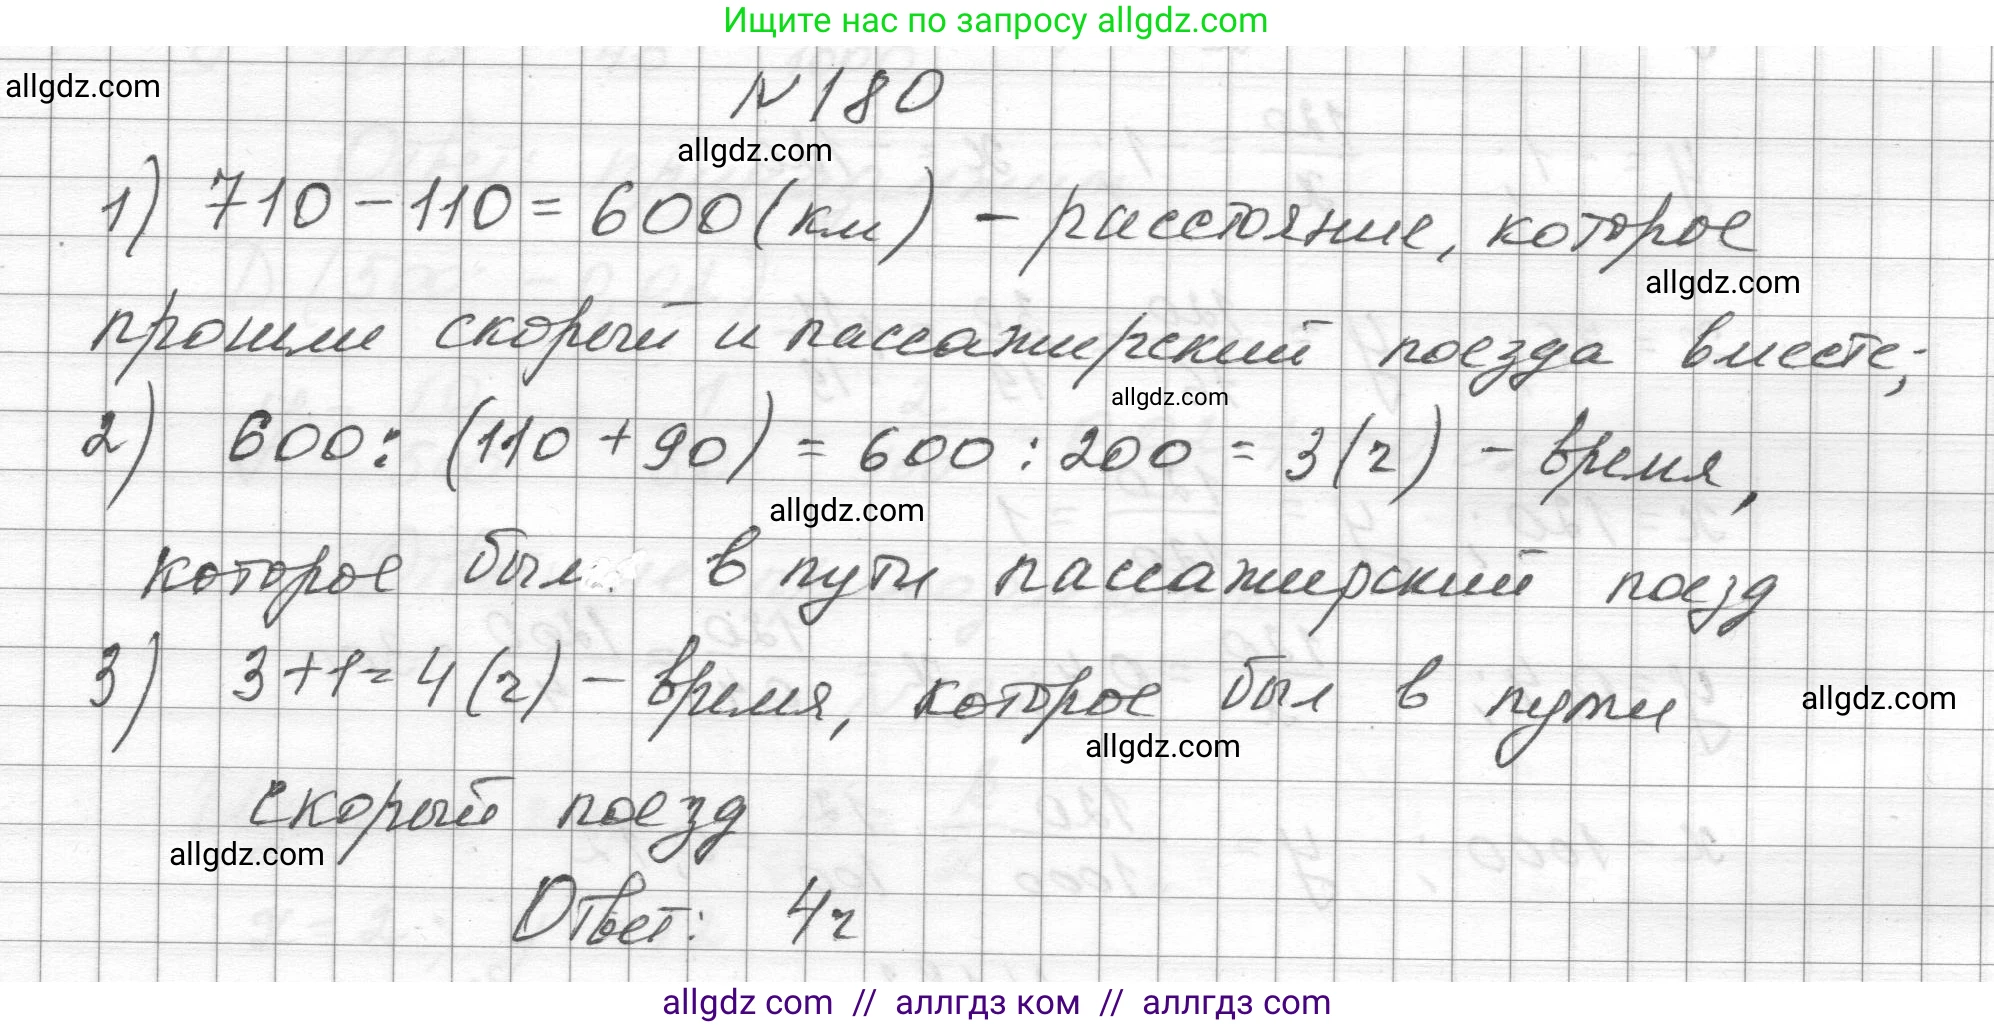 Ищите нас по запросу allgdz.com
allgdz.com
N180
allgdz.com
1) 710-110=600(км) - расстояние, которое
allgdz.com
прошли скорый и пассажирский поезда вместе;
allgdz.com
2) 600:(110+90)=600:200=3(ч) - время,
allgdz.com
которое был в пути пассажирский поезд
3) 3+1=4(ч) - время, которое был в пути
allgdz.com
allgdz.com
скорый поезд
allgdz.com
Ответ: 4ч
allgdz com // аллгдз ком // аллгдз com